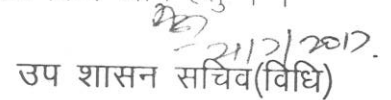 21/7/2017.
उप शासन सचिव(विधि)